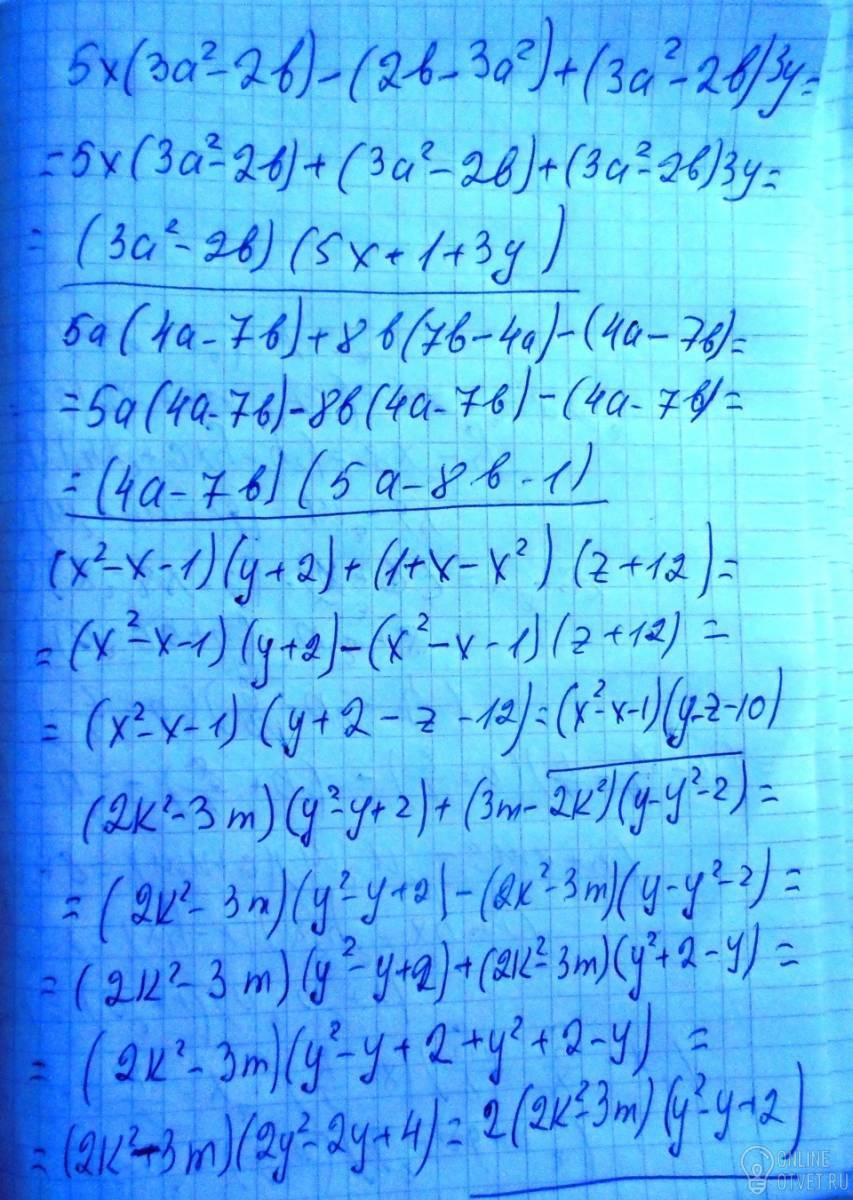 5x(3a²-2b)-(2b-3a²)+(3a²-2b)3y=
=5x(3a²-2b)+(3a²-2b)+(3a²-2b)3y=
=(3a²-2b)(5x+1+3y)
5a(4a-7b)+8b(7b-4a)-(4a-7b)=
=5a(4a-7b)-8b(4a-7b)-(4a-7b)=
=(4a-7b)(5a-8b-1)
(x²-x-1)(y+2)+(1+x-x²)(z+12)=
=(x²-x-1)(y+2)-(x²-x-1)(z+12)=
=(x²-x-1)(y+2-z-12)=(x²-x-1)(y-z-10)
(2k²-3m)(y²-y+2)+(3m-2k²)(y-y²-2)=
=(2k²-3m)(y²-y+2)-(2k²-3m)(y-y²-2)=
=(2k²-3m)(y²-y+2)+(2k²-3m)(y²+2-y)=
=(2k²-3m)(y²-y+2+y²+2-y)=
=(2k²-3m)(2y²-2y+4)=2(2k²-3m)(y²-y+2)
ONLINE
OTVET.RU